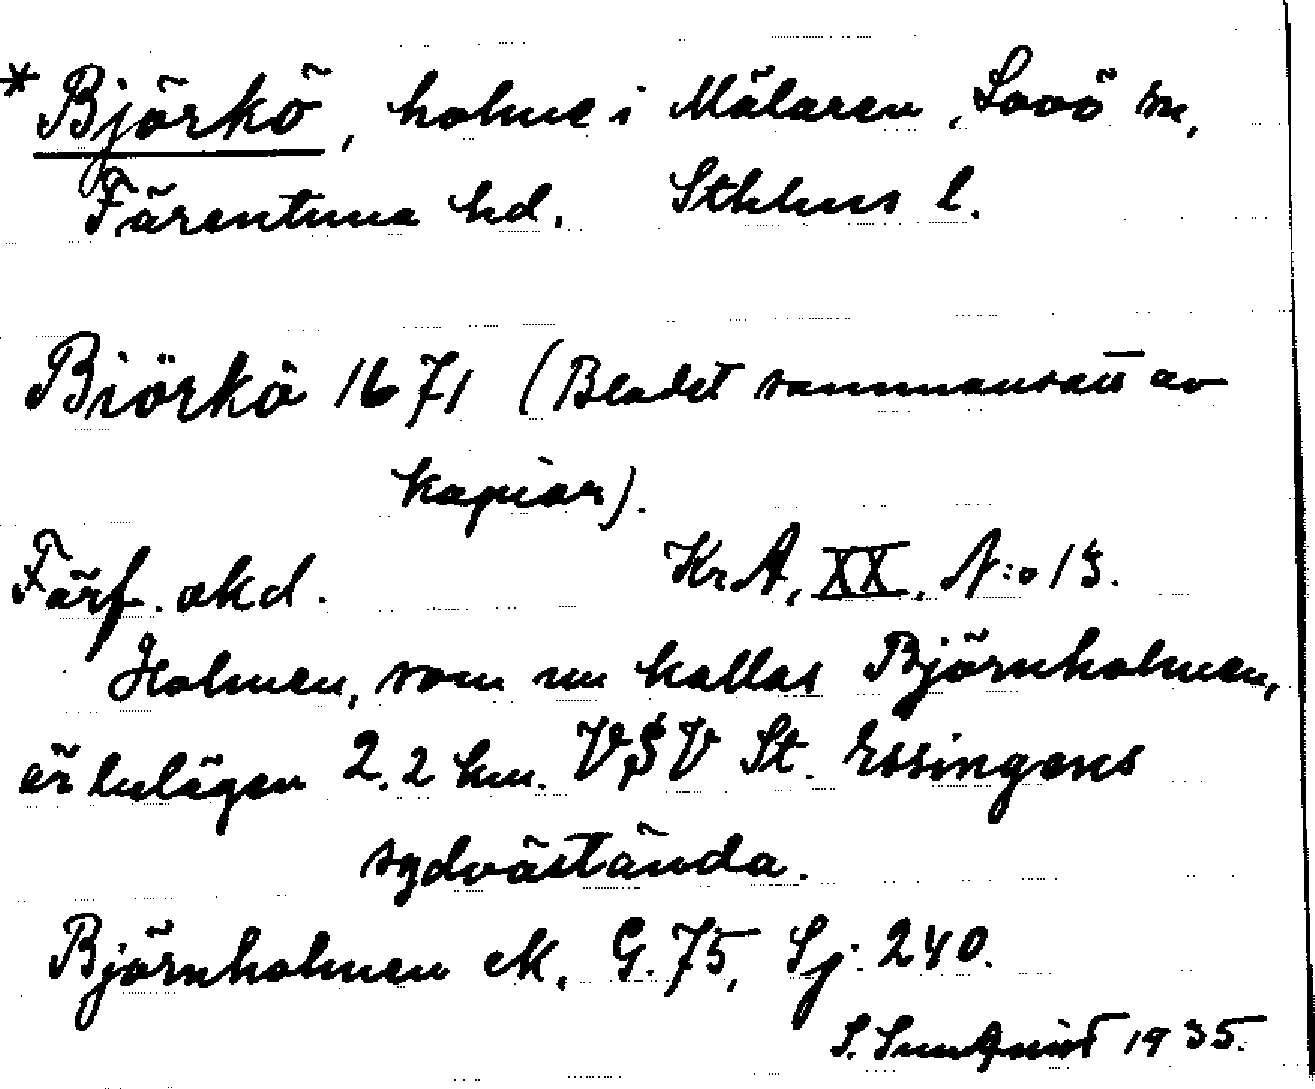 *Björkö, holme i Mälaren, Lovö sn,
Färentuna hd. Sthlms l.
Biörkö 1671 (Bladet sammansatt av
kopior).
Förf. okd. KrA, XX, N:o 13.
Holmen, som nu kallas Björnholmen,
är belägen 2.2 km. VSV St. Essingens
sydvästända.
Björnholmen ek, G. 75, Sj: 240.
S. Sundqvist 1935.